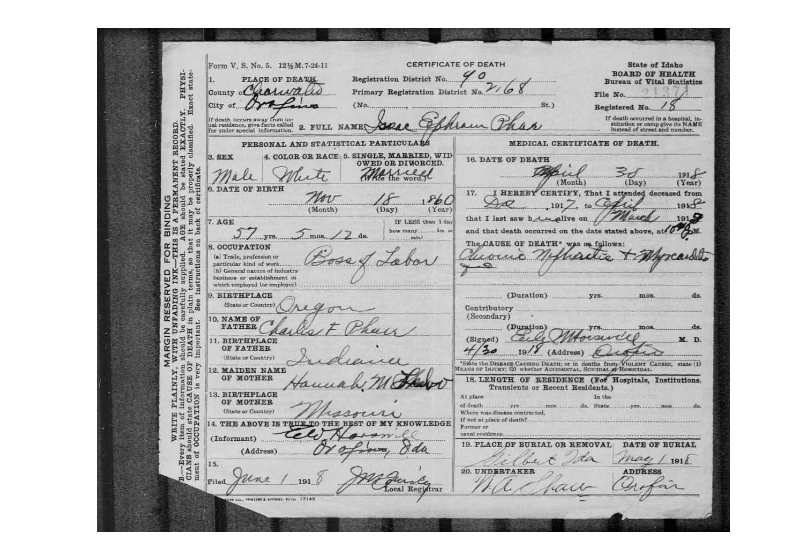 Form V. S. No. 5. 12½ M. 7-24-11
CERTIFICATE OF DEATH
State of Idaho
BOARD OF HEALTH
Bureau of Vital Statistics
1. PLACE OF DEATH
County of
City of Orofino
Registration District No. 90
Primary Registration District No. 2168
(No. St.)
File No.
Registered No. 18
If death occurs away from usual residence, give facts called for under special information.
If death occurred in a hospital, institution or camp give its NAME instead of street and number.
2. FULL NAME Isaac Ephram Pharr
PERSONAL AND STATISTICAL PARTICULARS
3. SEX
Male
4. COLOR OR RACE
White
5. SINGLE, MARRIED, WIDOWED OR DIVORCED.
(Write the word.)
Married
6. DATE OF BIRTH
Nov 18 1860
(Month) (Day) (Year)
7. AGE
57 yrs. 5 mos. 12 ds.
IF LESS than 1 day how many hrs or min?
8. OCCUPATION
(a) Trade, profession or particular kind of work
(b) General nature of industry business or establishment in which employed (or employer)
Boss of Labor
9. BIRTHPLACE
(State or Country) Oregon
10. NAME OF FATHER Charles F Pharr
11. BIRTHPLACE OF FATHER
(State or Country) Indiana
12. MAIDEN NAME OF MOTHER Hannah M
13. BIRTHPLACE OF MOTHER
(State or Country) Missouri
14. THE ABOVE IS TRUE TO THE BEST OF MY KNOWLEDGE
(Informant)
(Address) Orofino, Ida
15.
Filed June 1 1918
Local Registrar
MEDICAL CERTIFICATE OF DEATH.
16. DATE OF DEATH
April 30 1918
(Month) (Day) (Year)
17. I HEREBY CERTIFY, That I attended deceased from
Dec 1917, to April 1918
that I last saw him alive on March 1918
and that death occurred on the date stated above, at 10 M.
The CAUSE OF DEATH* was as follows:
Chronic Nephritis + Myocarditis
(Duration) yrs. mos. ds.
Contributory
(Secondary)
(Duration) yrs. mos. ds.
(Signed) M. D.
4/30 1918 (Address) Orofino
*State the DISEASE CAUSING DEATH; or in deaths from VIOLENT CAUSES, state (1) MEANS OF INJURY; (2) whether ACCIDENTAL, SUICIDAL or HOMICIDAL.
18. LENGTH OF RESIDENCE (For Hospitals, Institutions, Transients or Recent Residents.)
At place of death yrs. mos. ds. In the State yrs. mos. ds.
Where was disease contracted, if not at place of death?
Former or usual residence
19. PLACE OF BURIAL OR REMOVAL
Gilbert Ida
DATE OF BURIAL
May 1 1918
20. UNDERTAKER
ADDRESS
Orofino
MARGIN RESERVED FOR BINDING
WRITE PLAINLY, WITH UNFADING INK—THIS IS A PERMANENT RECORD.
B.—Every item of information should be carefully supplied. AGE should be stated EXACTLY. PHYSICIANS should state CAUSE OF DEATH in plain terms, so that it may be properly classified. Exact statement of OCCUPATION is very important. See instructions on back of certificate.